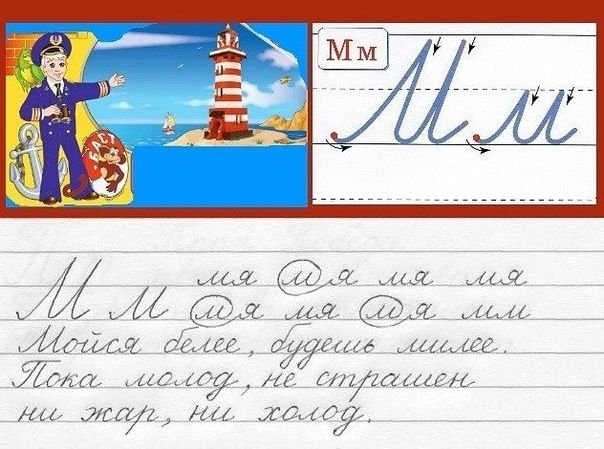 М м
М м
М м мя мя мя мя
мя мя мя мм
Мойся белее, будешь милее.
Пока молод, не страшен
ни жар, ни холод.